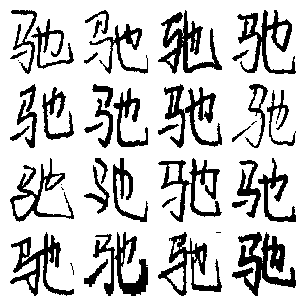 驰驰驰驰
驰驰驰驰
驰驰驰驰
驰驰驰驰